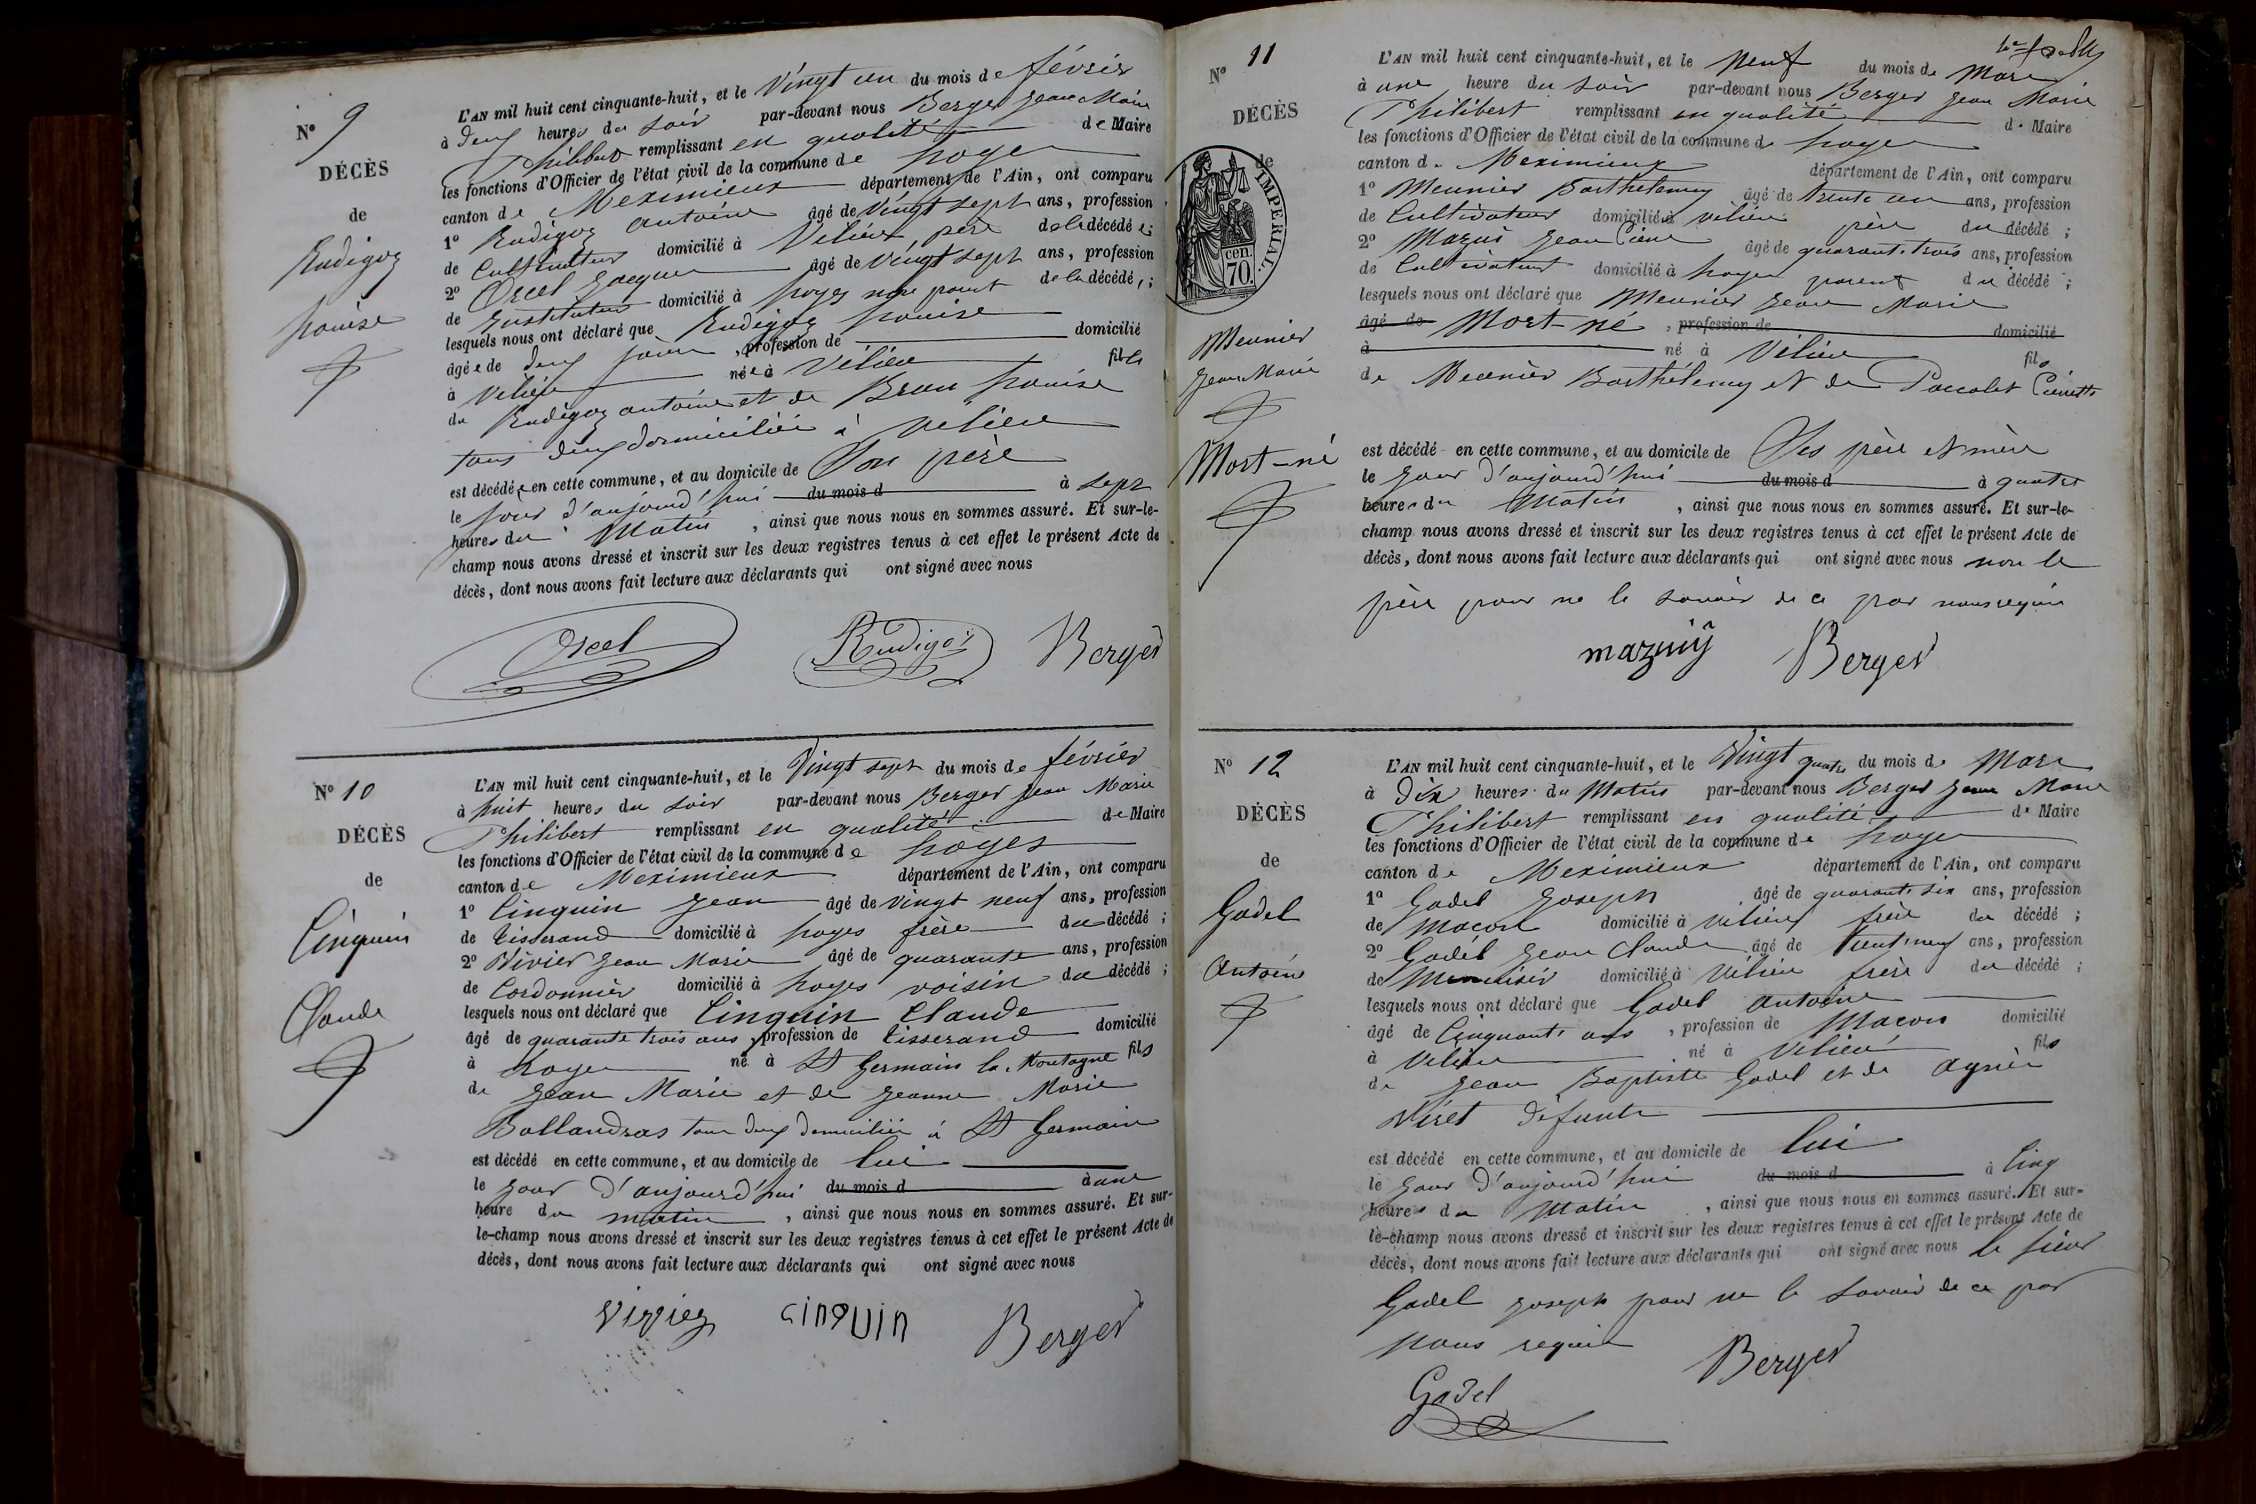 N° 9
DÉCÈS
de
Rudigoz
Louise
L'AN mil huit cent cinquante-huit, et le Vingt un du mois de février
à deux heures du soir par-devant nous Berger Jean Marie
Philibert remplissant en qualité de Maire
les fonctions d'Officier de l'état civil de la commune de Loyes
canton de Meximieux département de l'Ain, ont comparu
1° Rudigoz antoine âgé de vingt sept ans, profession
de Cultivateur domicilié à Vélieu père de la décédée;
2° Orcel Jacques âgé de vingt sept ans, profession
de Instituteur domicilié à Loyes non parent de la décédée;
lesquels nous ont déclaré que Rudigoz Louise
âgée de deux jours, profession de domicilié
à Vélieu née à Vélieu fille
de Rudigoz antoine et de Brun Louise
tous deux domiciliés à Vélieu
est décédée en cette commune, et au domicile de Son père
le jour d'aujourd'hui du mois d à sept
heures du Matin, ainsi que nous nous en sommes assuré. Et sur-le-
champ nous avons dressé et inscrit sur les deux registres tenus à cet effet le présent Acte de
décès, dont nous avons fait lecture aux déclarants qui ont signé avec nous
Orcel Rudigoz Berger
N° 10
DÉCÈS
de
Cinquin
Claude
L'AN mil huit cent cinquante-huit, et le Vingt sept du mois de février
à huit heures du soir par-devant nous Berger Jean Marie
Philibert remplissant en qualité de Maire
les fonctions d'Officier de l'état civil de la commune de Loyes
canton de Meximieux département de l'Ain, ont comparu
1° Cinquin Jean âgé de vingt neuf ans, profession
de tisserand domicilié à Loyes frère du décédé;
2° Vivier Jean Marie âgé de quarante ans, profession
de Cordonnier domicilié à Loyes voisin du décédé;
lesquels nous ont déclaré que Cinquin Claude
âgé de quarante trois ans, profession de tisserand domicilié
à Loyes né à St Germain la Montagne fils
de Jean Marie et de Jeanne Marie
Bollandras tous deux domiciliés à St Germain
est décédé en cette commune, et au domicile de lui
le jour d'aujourd'hui du mois d à une
heure du matin, ainsi que nous nous en sommes assuré. Et sur-
le-champ nous avons dressé et inscrit sur les deux registres tenus à cet effet le présent Acte de
décès, dont nous avons fait lecture aux déclarants qui ont signé avec nous
Viviez cinquin Berger
N° 11
DÉCÈS
de
IMPERIAL.
70 cen.
Meunier
Jean Marie
Mort-né
L'AN mil huit cent cinquante-huit, et le Neuf du mois de Mars
à une heure du soir par-devant nous Berger Jean Marie
Philibert remplissant en qualité de Maire
les fonctions d'Officier de l'état civil de la commune de Loyes
canton de Meximieux département de l'Ain, ont comparu
1° Meunier Barthélemy âgé de trente un ans, profession
de Cultivateur domicilié à vélieu père du décédé;
2° Mazui Jean Pierre âgé de quarante trois ans, profession
de Cultivateur domicilié à Loyes parent du décédé;
lesquels nous ont déclaré que Meunier Jean Marie
âgé de Mort-né, profession de domicilié
à né à Vélieu fils
de Meunier Barthélemy et de Paccalet Pierrette
est décédé en cette commune, et au domicile de Ses père et mère
le jour d'aujourd'hui du mois d à quatre
heures du Matin, ainsi que nous nous en sommes assuré. Et sur-le-
champ nous avons dressé et inscrit sur les deux registres tenus à cet effet le présent Acte de
décès, dont nous avons fait lecture aux déclarants qui ont signé avec nous non le
père pour ne le savoir de ce par nous requis
mazuiy Berger
N° 12
DÉCÈS
de
Gadel
Antoine
L'AN mil huit cent cinquante-huit, et le Vingt quatre du mois de Mars
à Dix heures du Matin par-devant nous Berger Jean Marie
Philibert remplissant en qualité de Maire
les fonctions d'Officier de l'état civil de la commune de Loyes
canton de Meximieux département de l'Ain, ont comparu
1° Gadel Joseph âgé de quarante six ans, profession
de Macon domicilié à vélieu frère du décédé;
2° Gadel Jean Claude âgé de trente neuf ans, profession
de Menuisier domicilié à Vélieu frère du décédé;
lesquels nous ont déclaré que Gadel antoine
âgé de Cinquante ans, profession de Macon domicilié
à Vélieu né à Vélieu fils
de Jean Baptiste Gadel et de Agnès
Viret défunts
est décédé en cette commune, et au domicile de lui
le jour d'aujourd'hui du mois d à Cinq
heures du Matin, ainsi que nous nous en sommes assuré. Et sur-
le-champ nous avons dressé et inscrit sur les deux registres tenus à cet effet le présent Acte de
décès, dont nous avons fait lecture aux déclarants qui ont signé avec nous le sieur
Gadel Joseph pour ne le savoir de ce par
nous requis
Gadel Berger